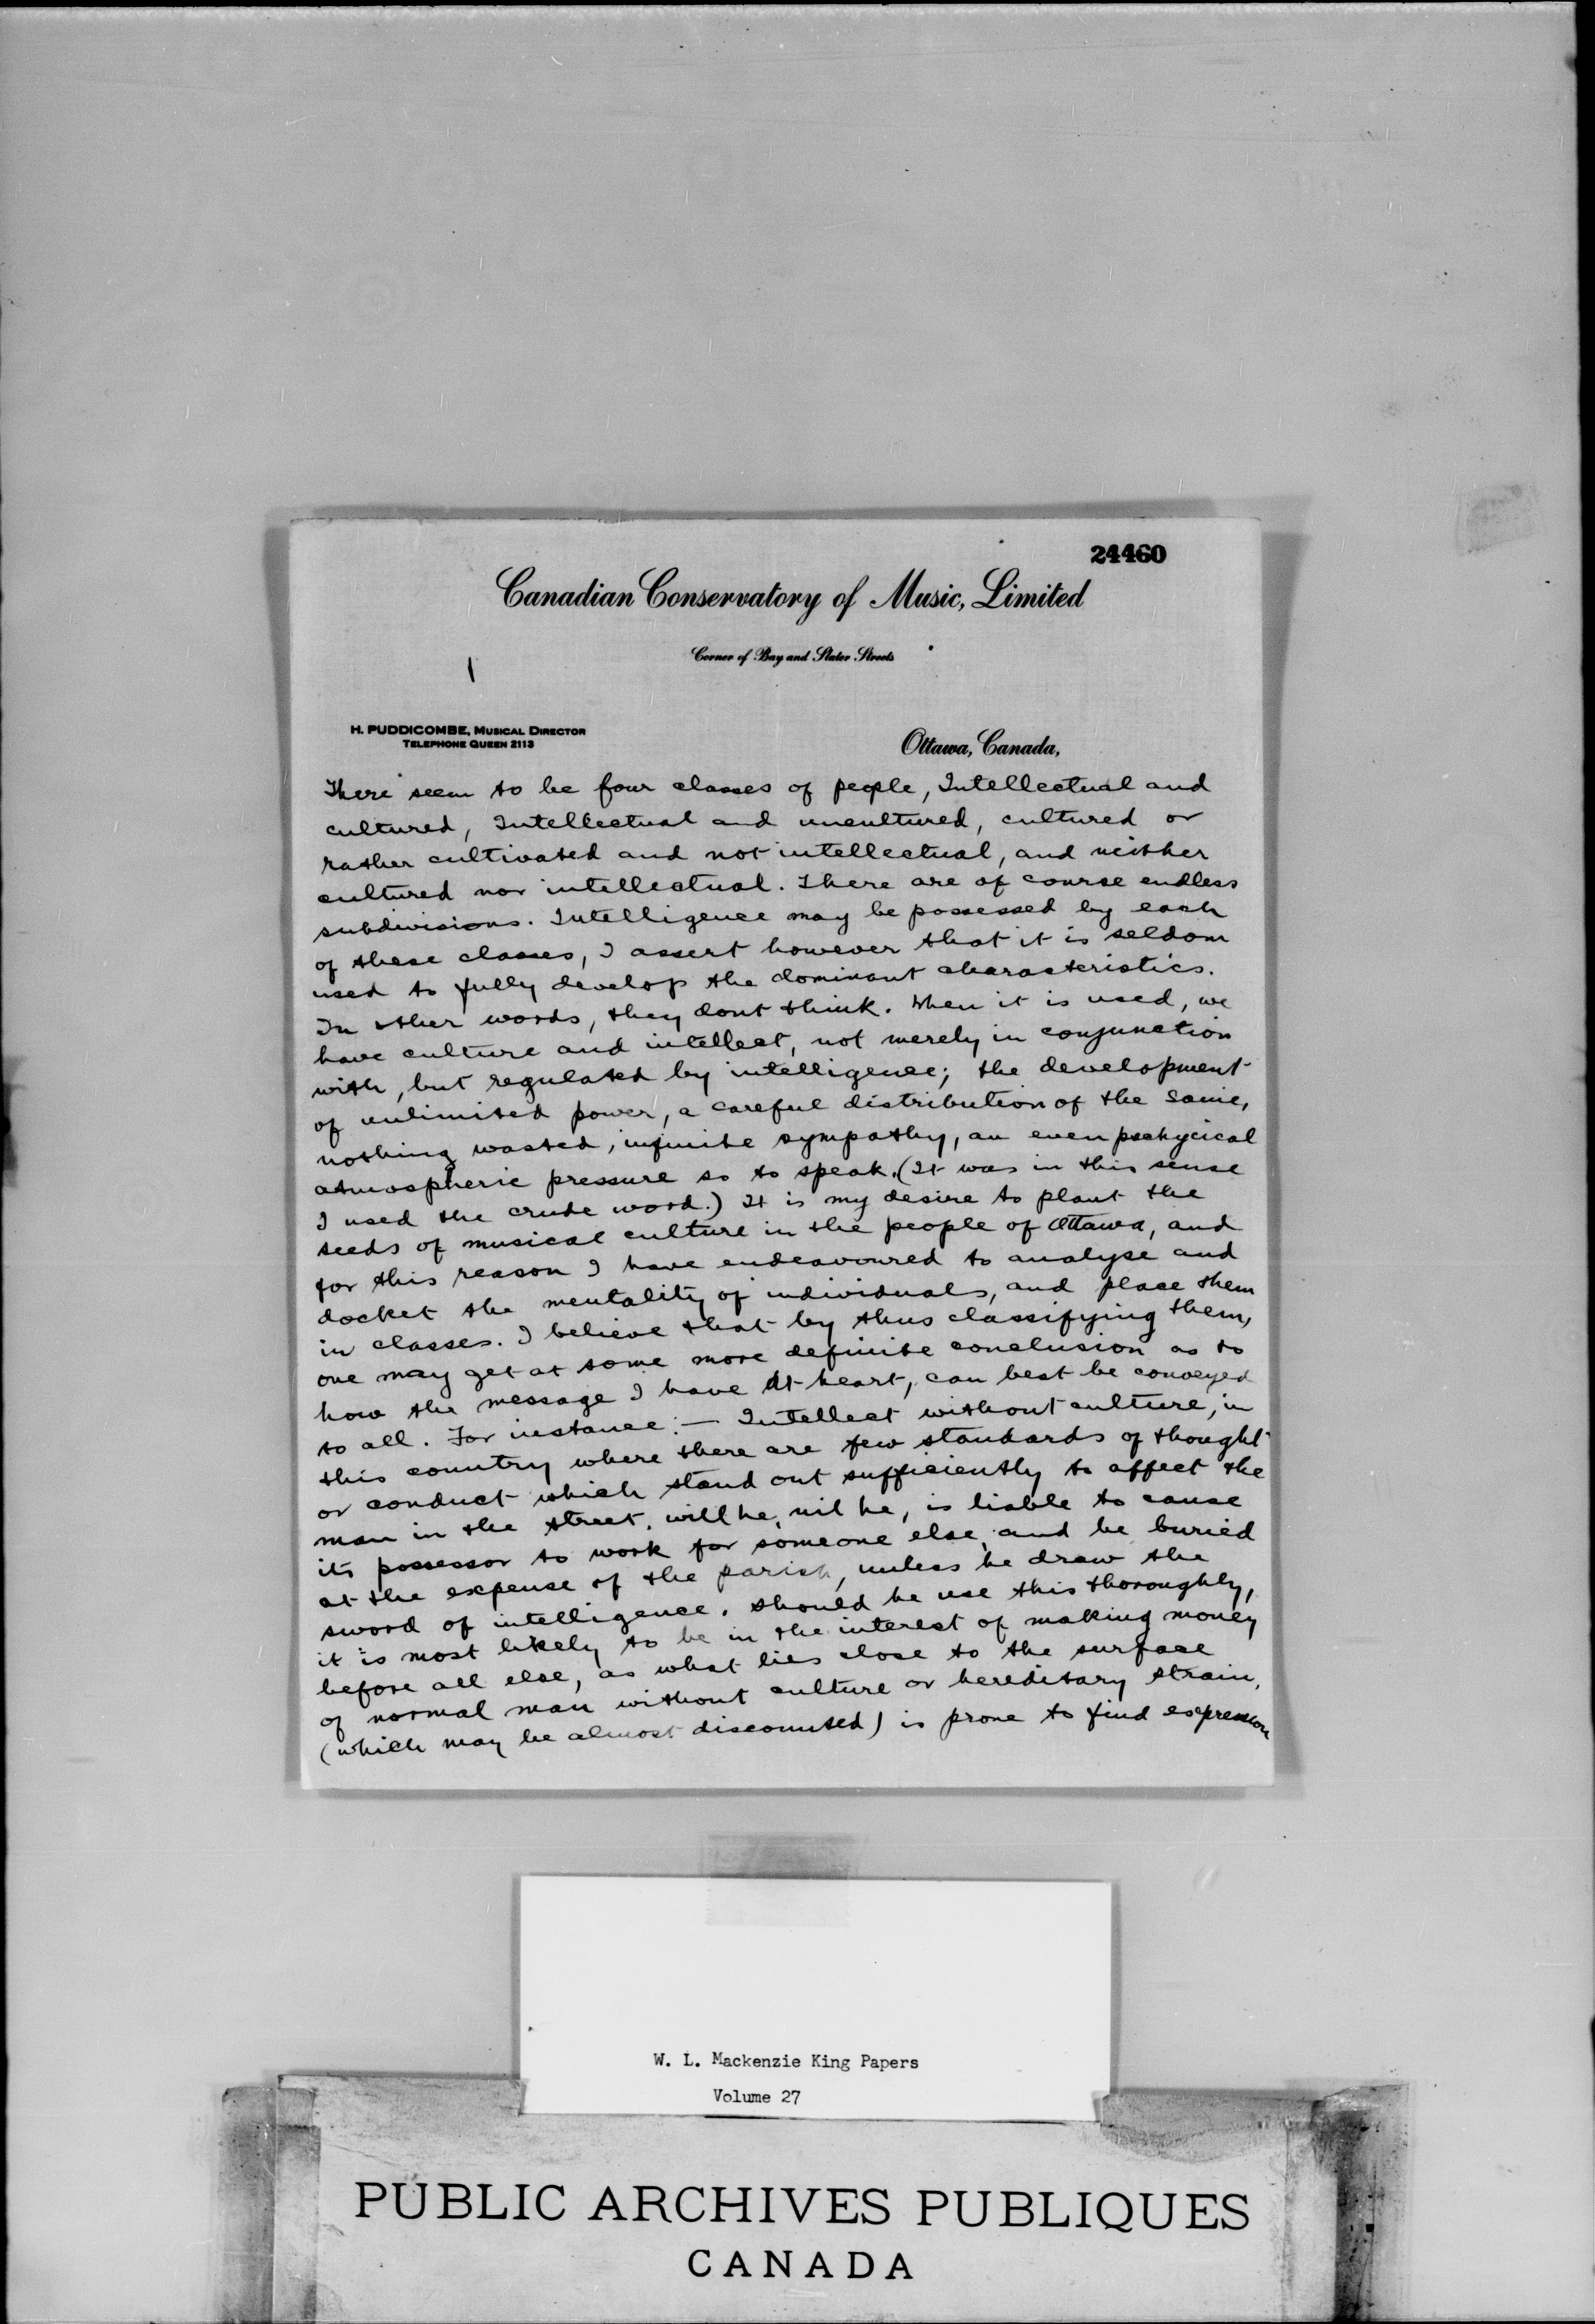 24460
Canadian Conservatory of Music, Limited
Corner of Bay and Slater Streets
1
H. PUDDICOMBE, MUSICAL DIRECTOR
TELEPHONE QUEEN 2113
Ottawa, Canada,
There seem to be four classes of people, Intellectual and
cultured, Intellectual and uncultured, cultured or
rather cultivated and not intellectual, and neither
cultured nor intellectual. There are of course endless
subdivisions. Intelligence may be possessed by each
of these classes, I assert however that it is seldom
used to fully develop the dominant characteristics.
In other words, they dont think. When it is used, we
have culture and intellect, not merely in conjunction
with, but regulated by intelligence; the development
of unlimited power, a careful distribution of the same,
nothing wasted, infinite sympathy, an even psehycical
atmospheric pressure so to speak. (It was in this sense
I used the crude word.) It is my desire to plant the
seeds of musical culture in the people of Ottawa, and
for this reason I have endeavoured to analyse and
docket the mentality of individuals, and place them
in classes. I believe that by thus classifying them,
one may get at some more definite conclusion as to
how the message I have At heart, can best be conveyed
to all. For instance:— Intellect without culture, in
this country where there are few standards of thought
or conduct which stand out sufficiently to affect the
man in the street, will he, nil he, is liable to cause
its possessor to work for someone else, and be buried
at the expense of the parish, unless he draw the
sword of intelligence. Should he use this thoroughly,
it is most likely to be in the interest of making money
before all else, as what lies close to the surface
of normal man without culture or hereditary strain,
(which may be almost discounted) is prone to find expression
W. L. Mackenzie King Papers
Volume 27
PUBLIC ARCHIVES PUBLIQUES
CANADA